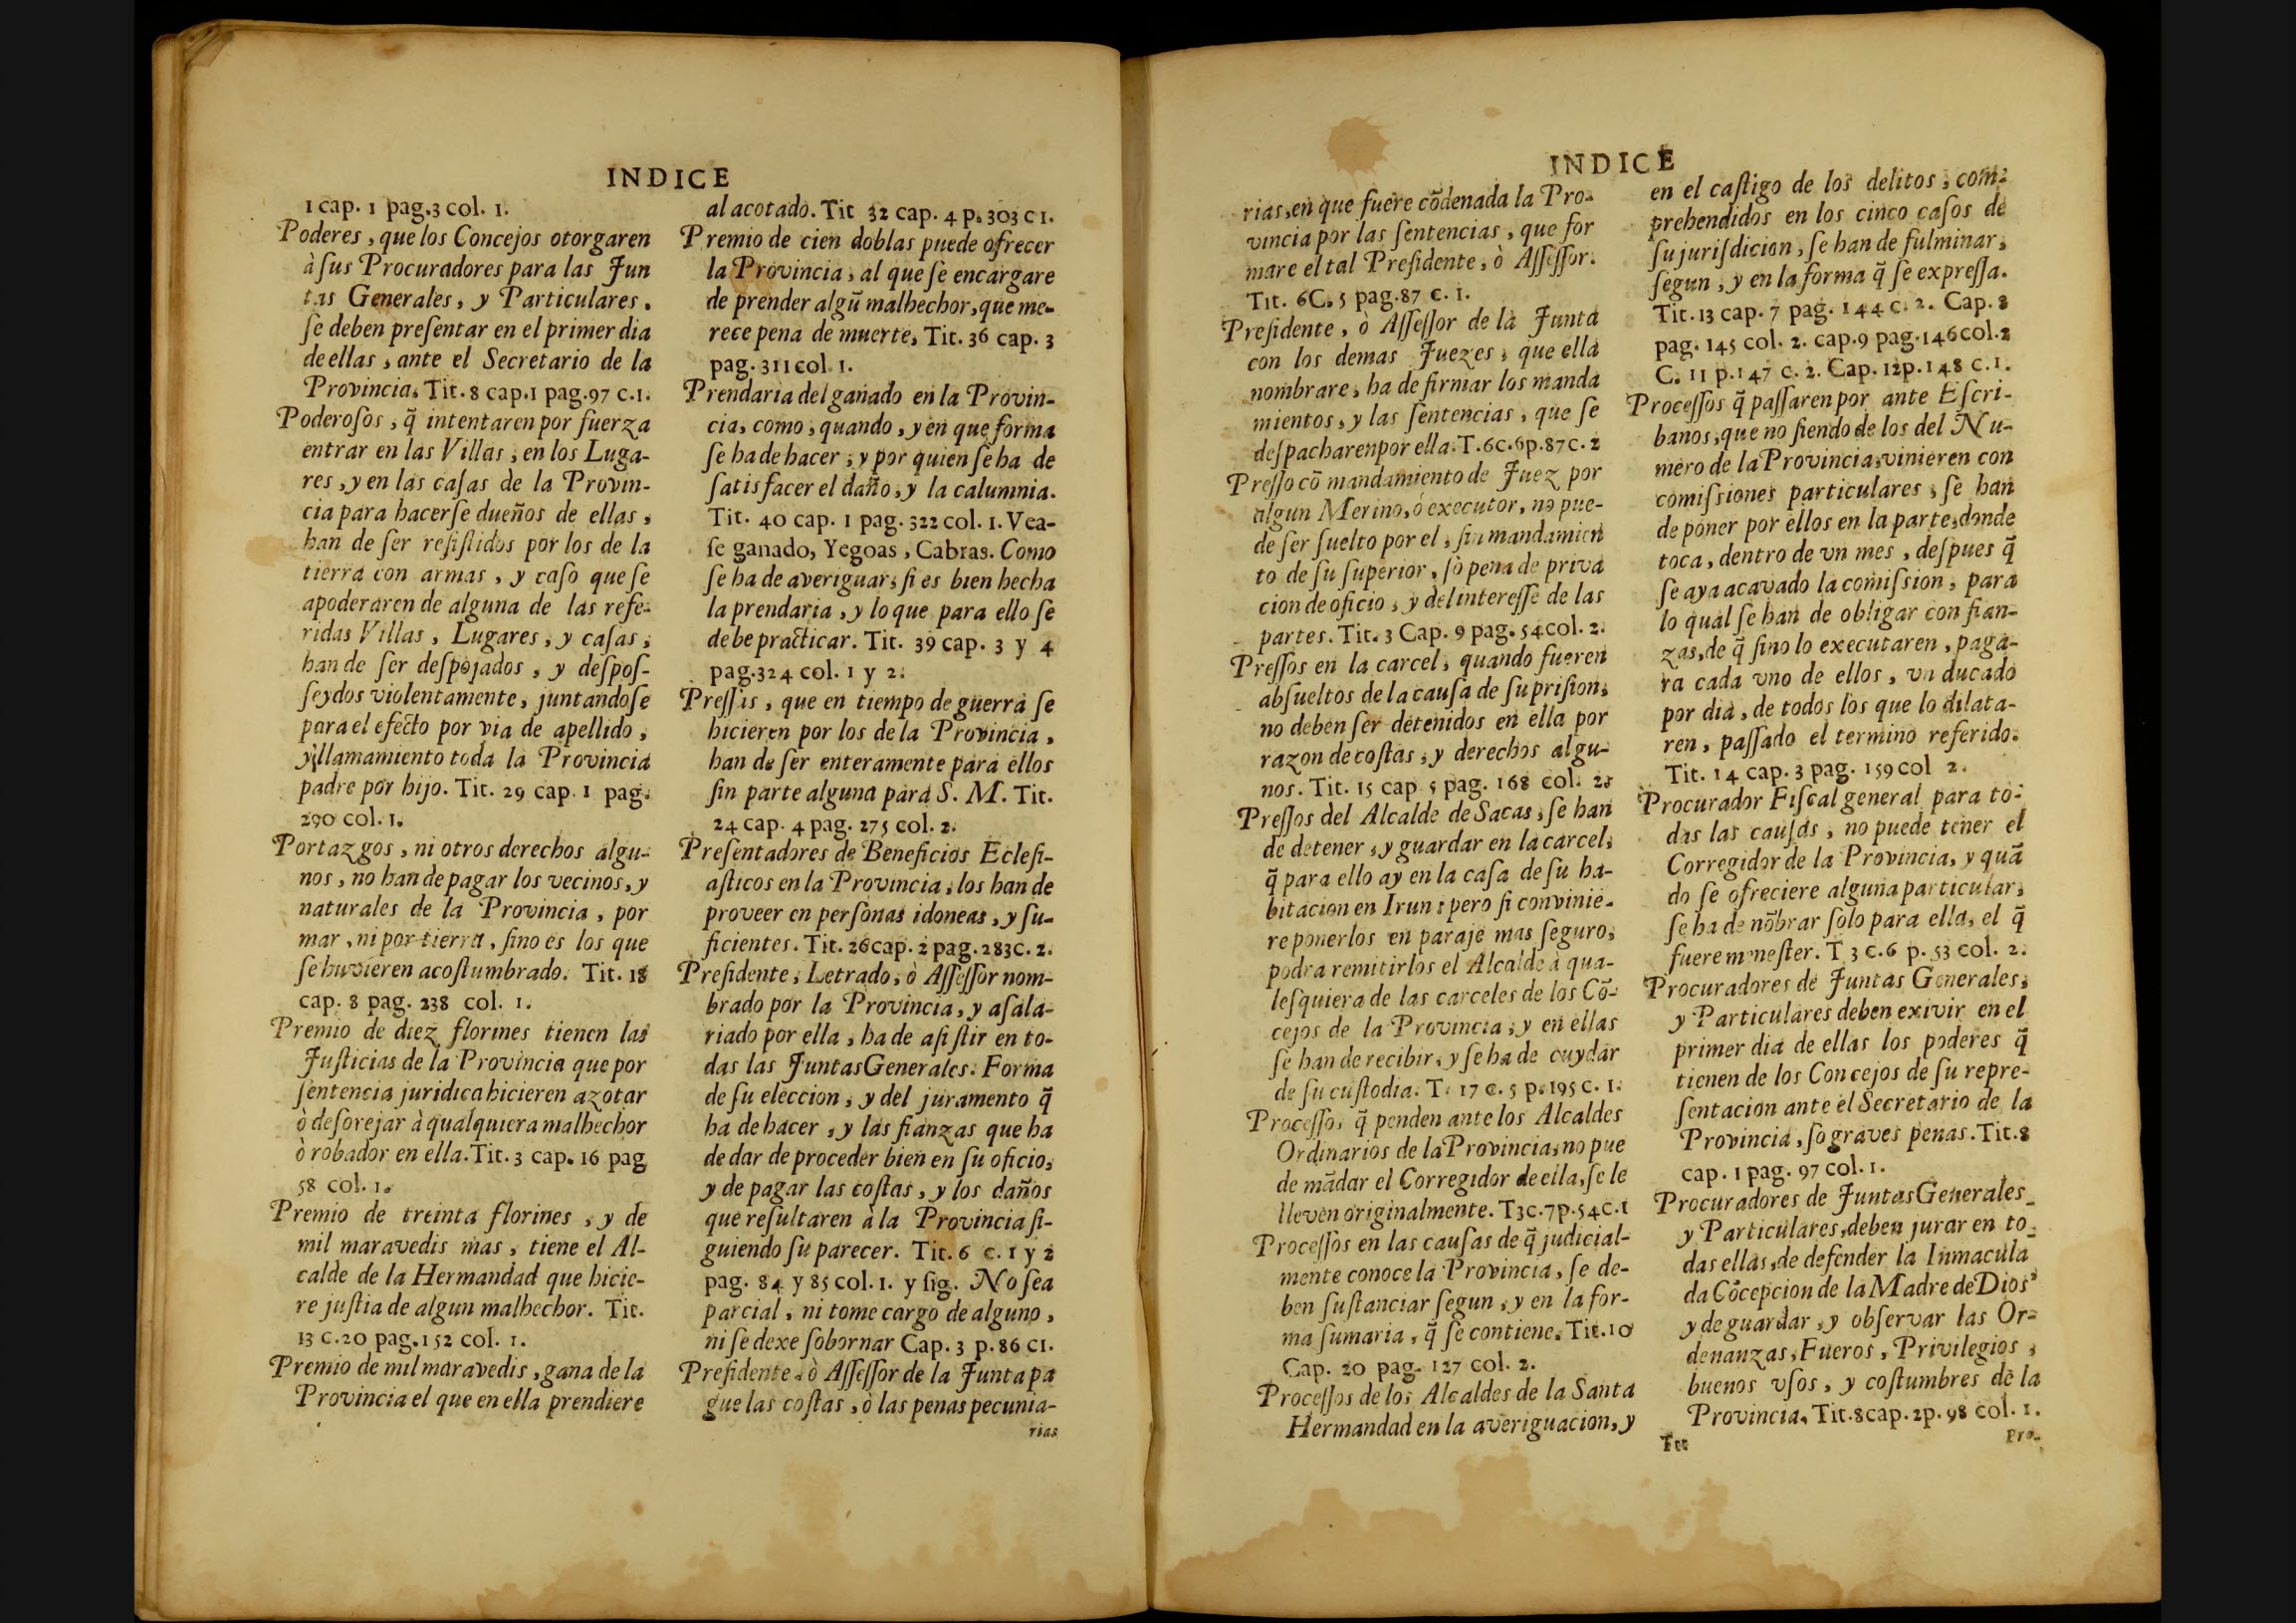 INDICE
1 cap. 1 pag.3 col. 1.
Poderes, que los Concejos otorgaren
à ſus Procuradores para las Jun
tas Generales, y Particulares.
ſe deben preſentar en el primer dia
de ellas, ante el Secretario de la
Provincia. Tit. 8 cap.1 pag.97 c.1.
Poderoſos, q̃ intentaren por fuerza
entrar en las Villas, en los Luga-
res, y en las caſas de la Provin-
cia para hacerſe dueños de ellas,
han de ſer reſiſtidos por los de la
tierra con armas, y caſo que ſe
apoderaren de alguna de las refe-
ridas Villas, Lugares, y caſas,
han de ſer deſpojados, y deſpoſ-
ſeydos violentamente, juntandoſe
para el efecto por via de apellido,
y llamamiento toda la Provincia
padre por hijo. Tit. 29 cap. 1 pag.
290 col. 1.
Portazgos, ni otros derechos algu-
nos, no han de pagar los vecinos, y
naturales de la Provincia, por
mar, ni por tierra, ſino es los que
ſe huvieren acoſtumbrado. Tit. 18
cap. 8 pag. 238 col. 1.
Premio de diez florines tienen las
Juſticias de la Provincia que por
ſentencia juridica hicieren azotar
ò deſorejar à qualquiera malhechor
ò robador en ella. Tit. 3 cap. 16 pag
58 col. 1.
Premio de treinta florines, y de
mil maravedis mas, tiene el Al-
calde de la Hermandad que hicie-
re juſtia de algun malhechor. Tit.
13 c.20 pag.152 col. 1.
Premio de mil maravedis, gana de la
Provincia el que en ella prendiere
al acotado. Tit 32 cap. 4 p. 303 c1.
Premio de cien doblas puede ofrecer
la Provincia, al que ſe encargare
de prender algũ malhechor, que me-
rece pena de muerte, Tit. 36 cap. 3
pag. 311 col. 1.
Prendaria del ganado en la Provin-
cia, como, quando, y en que forma
ſe ha de hacer, y por quien ſe ha de
ſatisfacer el daño, y la calumnia.
Tit. 40 cap. 1 pag. 322 col. 1. Vea-
ſe ganado, Yegoas, Cabras. Como
ſe ha de averiguar, ſi es bien hecha
la prendaria, y lo que para ello ſe
debe practicar. Tit. 39 cap. 3 y 4
pag.324 col. 1 y 2.
Preſſas, que en tiempo de guerra ſe
hicieren por los de la Provincia,
han de ſer enteramente para ellos
ſin parte alguna para S. M. Tit.
24 cap. 4 pag. 275 col. 2.
Preſentadores de Beneficios Ecleſi-
aſticos en la Provincia, los han de
proveer en perſonas idoneas, y ſu-
ficientes. Tit. 26 cap. 2 pag. 283 c. 2.
Preſidente, Letrado, ò Aſſeſſor nom-
brado por la Provincia, y aſala-
riado por ella, ha de aſiſtir en to-
das las Juntas Generales. Forma
de ſu eleccion, y del juramento q̃
ha de hacer, y las fianzas que ha
de dar de proceder bien en ſu oficio,
y de pagar las coſtas, y los daños
que reſultaren à la Provincia ſi-
guiendo ſu parecer. Tit. 6 c. 1 y 2
pag. 84 y 85 col. 1. y ſig. No ſea
parcial, ni tome cargo de alguno,
ni ſe dexe ſobornar Cap. 3 p. 86 c1.
Preſidente, ò Aſſeſſor de la Junta pa
gue las coſtas, ò las penas pecunia-
rias
INDICE
rias, en que fuere cõdenada la Pro-
vincia por las ſentencias, que for
mare el tal Preſidente, ò Aſſeſſor.
Tit. 6 C. 5 pag.87 c. 1.
Preſidente, ò Aſſeſſor de la Junta
con los demas Juezes, que ella
nombrare, ha de firmar los manda
mientos, y las ſentencias, que ſe
deſpacharen por ella. T. 6 c. 6 p. 87 c. 2
Preſſo cõ mandamiento de Juez por
algun Merino, ó executor, no pue-
de ſer ſuelto por el, ſin mandamien
to de ſu ſuperior, ſò pena de priva
cion de oficio, y del intereſſe de las
partes. Tit. 3 Cap. 9 pag. 54 col. 2.
Preſſos en la carcel, quando fueren
abſueltos de la cauſa de ſu priſion,
no deben ſer detenidos en ella por
razon de coſtas, y derechos algu-
nos. Tit. 15 cap 5 pag. 168 col. 2.
Preſſos del Alcalde de Sacas, ſe han
de detener, y guardar en la carcel,
q̃ para ello ay en la caſa de ſu ha-
bitacion en Irun: pero ſi convinie-
re ponerlos en paraje mas ſeguro,
podra remitirlos el Alcalde à qua-
leſquiera de las carceles de los Cõ-
cejos de la Provincia, y en ellas
ſe han de recibir, y ſe ha de cuydar
de ſu cuſtodia. T. 17 c. 5 p. 195 c. 1.
Proceſſos q̃ penden ante los Alcaldes
Ordinarios de la Provincia, no pue
de mãdar el Corregidor de ella, ſe le
lleven originalmente. T3 c. 7 p. 54 c. 1
Proceſſos en las cauſas de q̃ judicial-
mente conoce la Provincia, ſe de-
ben ſuſtanciar ſegun, y en la for-
ma ſumaria, q̃ ſe contiene. Tit. 10
Cap. 20 pag. 127 col. 2.
Proceſſos de los Alcaldes de la Santa
Hermandad en la averiguacion, y
en el caſtigo de los delitos, com-
prehendidos en los cinco caſos de
ſu juriſdicion, ſe han de fulminar,
ſegun, y en la forma q̃ ſe expreſſa.
Tit. 13 cap. 7 pag. 144 c. 2. Cap. 8
pag. 145 col. 2. cap.9 pag.146 col.2
C. 11 p.147 c. 2. Cap. 12 p.148 c.1.
Proceſſos q̃ paſſaren por ante Eſcri-
banos, que no ſiendo de los del Nu-
mero de la Provincia, vinieren con
comiſsiones particulares, ſe han
de poner por ellos en la parte, donde
toca, dentro de vn mes, deſpues q̃
ſe aya acavado la comiſsion, para
lo qual ſe han de obligar con fian-
zas, de q̃ ſino lo executaren, paga-
ra cada vno de ellos, vn ducado
por dia, de todos los que lo dilata-
ren, paſſado el termino referido.
Tit. 14 cap. 3 pag. 159 col 2.
Procurador Fiſcal general para to-
das las cauſas, no puede tener el
Corregidor de la Provincia, y quã
do ſe ofreciere alguna particular,
ſe ha de nõbrar ſolo para ella, el q̃
fuere meneſter. T 3 c.6 p. 53 col. 2.
Procuradores de Juntas Generales,
y Particulares deben exivir en el
primer dia de ellas los poderes q̃
tienen de los Concejos de ſu repre-
ſentacion ante el Secretario de la
Provincia, ſo graves penas. Tit. 8
cap. 1 pag. 97 col. 1.
Procuradores de Juntas Generales
y Particulares, deben jurar en to-
das ellas, de defender la Inmacula
da Cõcepcion de la Madre de Dios,
y de guardar, y obſervar las Or-
denanzas, Fueros, Privilegios,
buenos vſos, y coſtumbres de la
Provincia. Tit. 8 cap. 2 p. 98 col. 1.
Ttt Pro-